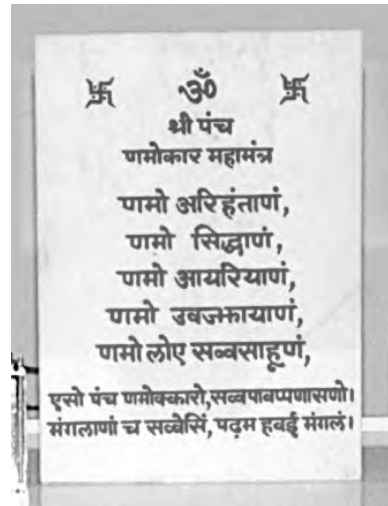 卐 ॐ 卐
श्री पंच
णमोकार महामंत्र
णमो अरिहंताणं,
णमो सिद्धाणं,
णमो आयरियाणं,
णमो उवज्झायाणं,
णमो लोए सव्वसाहूणं,
एसो पंच णमोक्कारो,सव्वपावप्पणासणो।
मंगलाणां च सव्वेसिं, पढ़म हवई मंगलं।